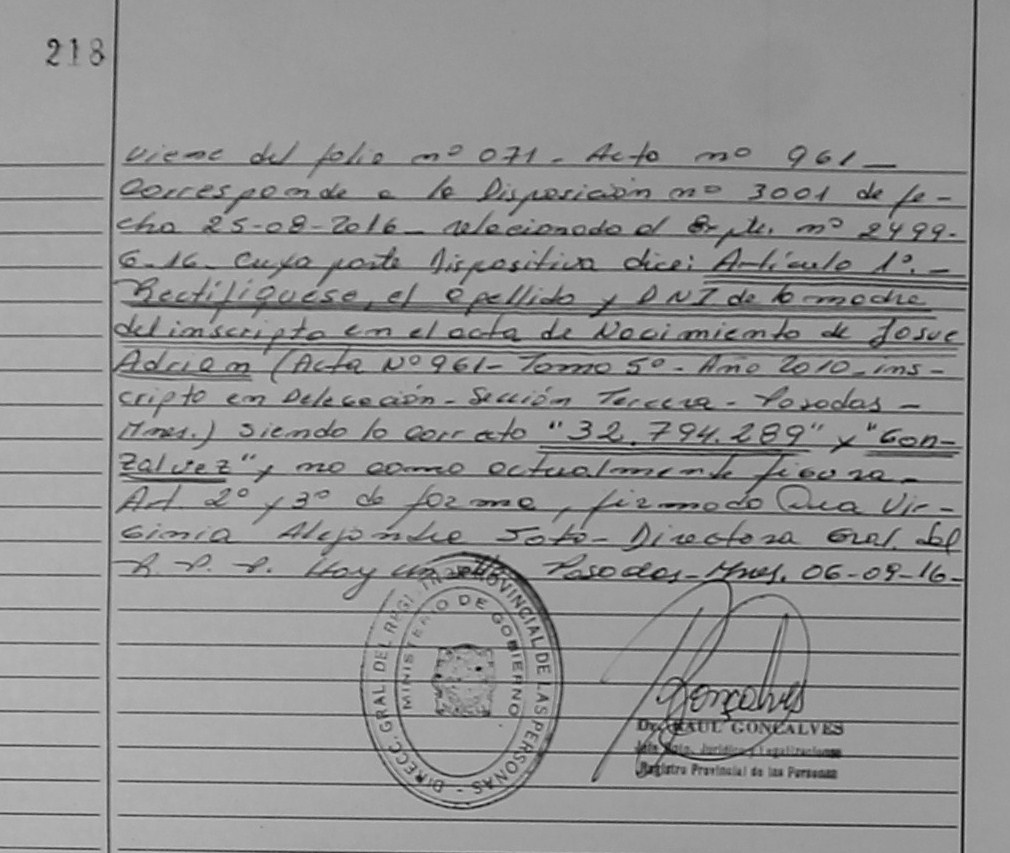 218
viene del folio nº 071 - Acta nº 961 -
Corresponde a la Disposición nº 3001 de fe-
cha 25-08-2016 - relacionado al Expte. nº 2499-
6-16 cuya parte Dispositiva dice: Artículo 1º.-
Rectifíquese, el apellido y DNI de la madre
del inscripto en el acta de Nacimiento de Josue
Adrian (Acta Nº 961 - Tomo 5º - Año 2010 - ins-
cripto en Delegación - Sección Tercera - Posadas -
Mnes.) siendo lo correcto "32.794.289" y "Gon-
zalvez" y no como actualmente figura -
Art. 2º y 3º de forma, firmado Vir-
ginia Alejandra - Directora Gral. del
R. P. P. Hay un Posadas - Mnes. 06-09-16 -
DIRECC. GRAL. DEL REGISTRO PROVINCIAL DE LAS PERSONAS -
MINISTERIO DE GOBIERNO
Gonçalves
Dr. RAUL GONCALVES
Jefe Dpto. Jurídico y Legalizaciones
Registro Provincial de las Personas